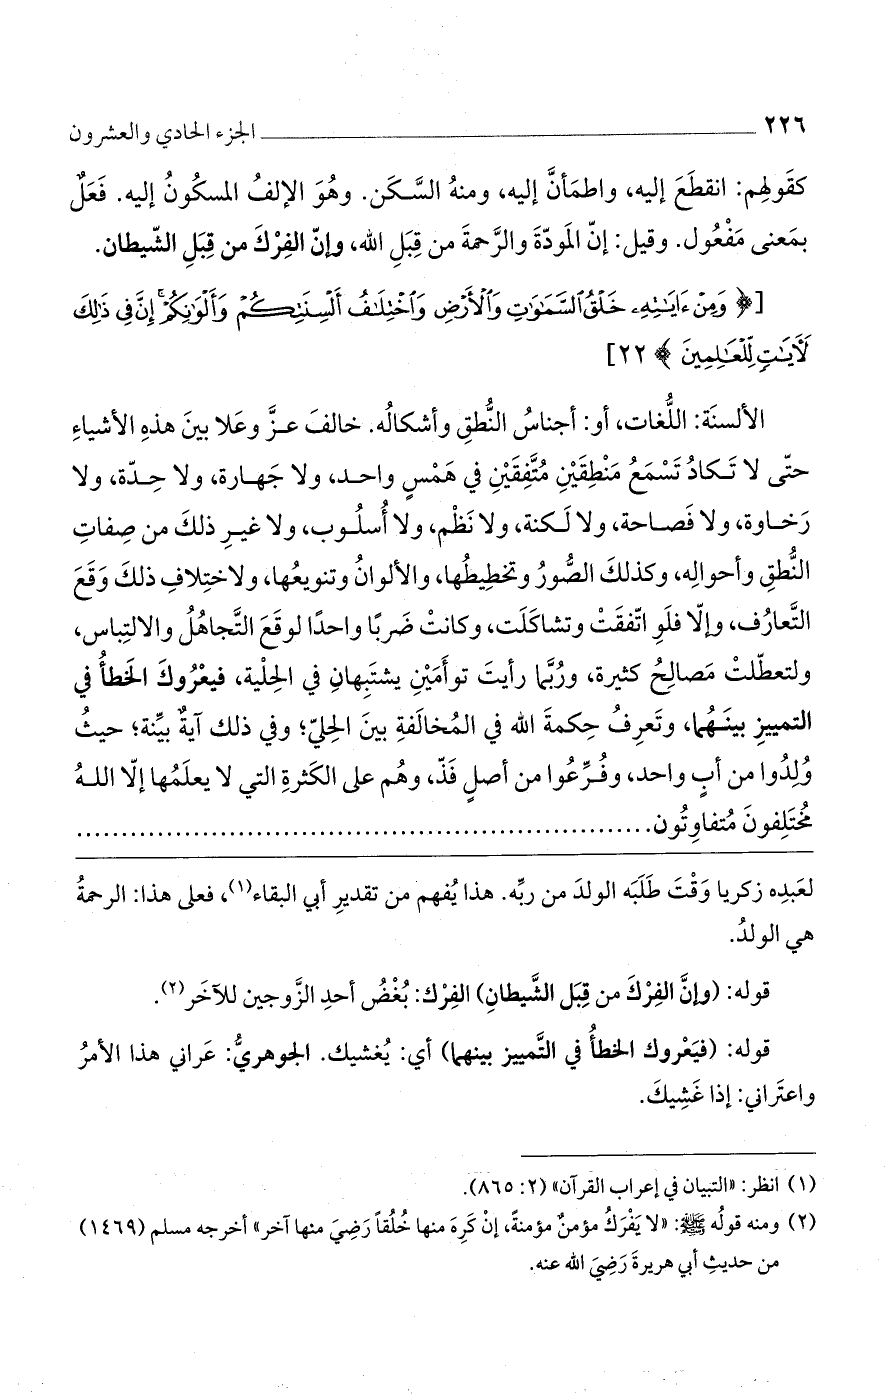 ٢٢٦ ــــــــــــــــــــــــــــــ الجزء الحادي والعشرون
كقَولِهم: انقطَعَ إليه، واطمَأنَّ إليه، ومنهُ السَّكَن. وهُوَ الإلفُ المسكُونُ إليه. فَعَلٌ
بمَعنى مَفْعُول. وقيل: إنّ المَودّةَ والرَّحمةَ من قِبَلِ الله، وإنّ الفِرْكَ من قِبَلِ الشّيطان.
[﴿ وَمِنْ ءَايَٰتِهِۦ خَلْقُ السَّمَٰوَٰتِ وَالْأَرْضِ وَاخْتِلَٰفُ أَلْسِنَتِكُمْ وَأَلْوَٰنِكُمْ ۚ إِنَّ فِي ذَٰلِكَ
لَأَيَٰتٍ لِّلْعَٰلِمِينَ ﴾ ٢٢]
الألسنَة: اللُّغات، أو: أجناسُ النُّطقِ وأشكالُه. خالفَ عزَّ وعَلا بينَ هذهِ الأشياءِ
حتّى لا تَكادُ تَسْمَعُ مَنْطِقَيْنِ مُتَّفِقَيْنِ في هَمْسٍ واحد، ولا جَهارة، ولا حِدّة، ولا
رَخاوة، ولا فَصاحة، ولا لَكنة، ولا نَظْم، ولا أُسلُوب، ولا غيرِ ذلكَ من صِفاتِ
النُّطقِ وأحوالِه، وكذلكَ الصُّورُ وتخطِيطُها، والألوانُ وتنويعُها، ولاختِلافِ ذلكَ وَقَعَ
التَّعارُف، وإلّا فلَوِ اتّفقَتْ وتشاكَلَت، وكانتْ ضَربًا واحدًا لوقَعَ التَّجاهُلُ والالتِباس،
ولتعطّلتْ مَصالِحُ كثيرة، ورُبَّما رأيتَ توأمَيْنِ يشتَبِهانِ في الحِلْية، فيعْرُوكَ الخَطأُ في
التمييزِ بينَهُما، وتَعرِفُ حِكمةَ الله في المُخالَفةِ بينَ الحِليّ؛ وفي ذلك آيةٌ بيِّنة؛ حيثُ
وُلِدُوا من أبٍ واحد، وفُرِّعُوا من أصلٍ فَذّ، وهُم على الكَثرةِ التي لا يعلَمُها إلّا اللهُ
مُختَلِفونَ مُتفاوِتُون................................................................
لعَبدِه زكريا وَقْتَ طَلَبَه الولدَ من ربِّه. هذا يُفهم من تقديرِ أبي البقاء(١)، فعلى هذا: الرحمةُ
هي الولدُ.
قوله: (وإنَّ الفِرْكَ من قِبَل الشَّيطانِ) الفِرْك: بُغْضُ أحدِ الزَّوجين للآخَر(٢).
قوله: (فيَعْروك الخطأُ في التَّمييز بينهما) أي: يُغشيك. الجوهريُّ: عَراني هذا الأمرُ
واعتَراني: إذا غَشِيكَ.
(١) انظر: «التبيان في إعراب القرآن» (٢: ٨٦٥).
(٢) ومنه قولُه ﷺ: «لا يَفْرَكُ مؤمنٌ مؤمنةً، إنْ كَرِهَ منها خُلُقاً رَضِيَ منها آخر» أخرجه مسلم (١٤٦٩)
من حديثِ أبي هريرةَ رَضِيَ الله عنه.